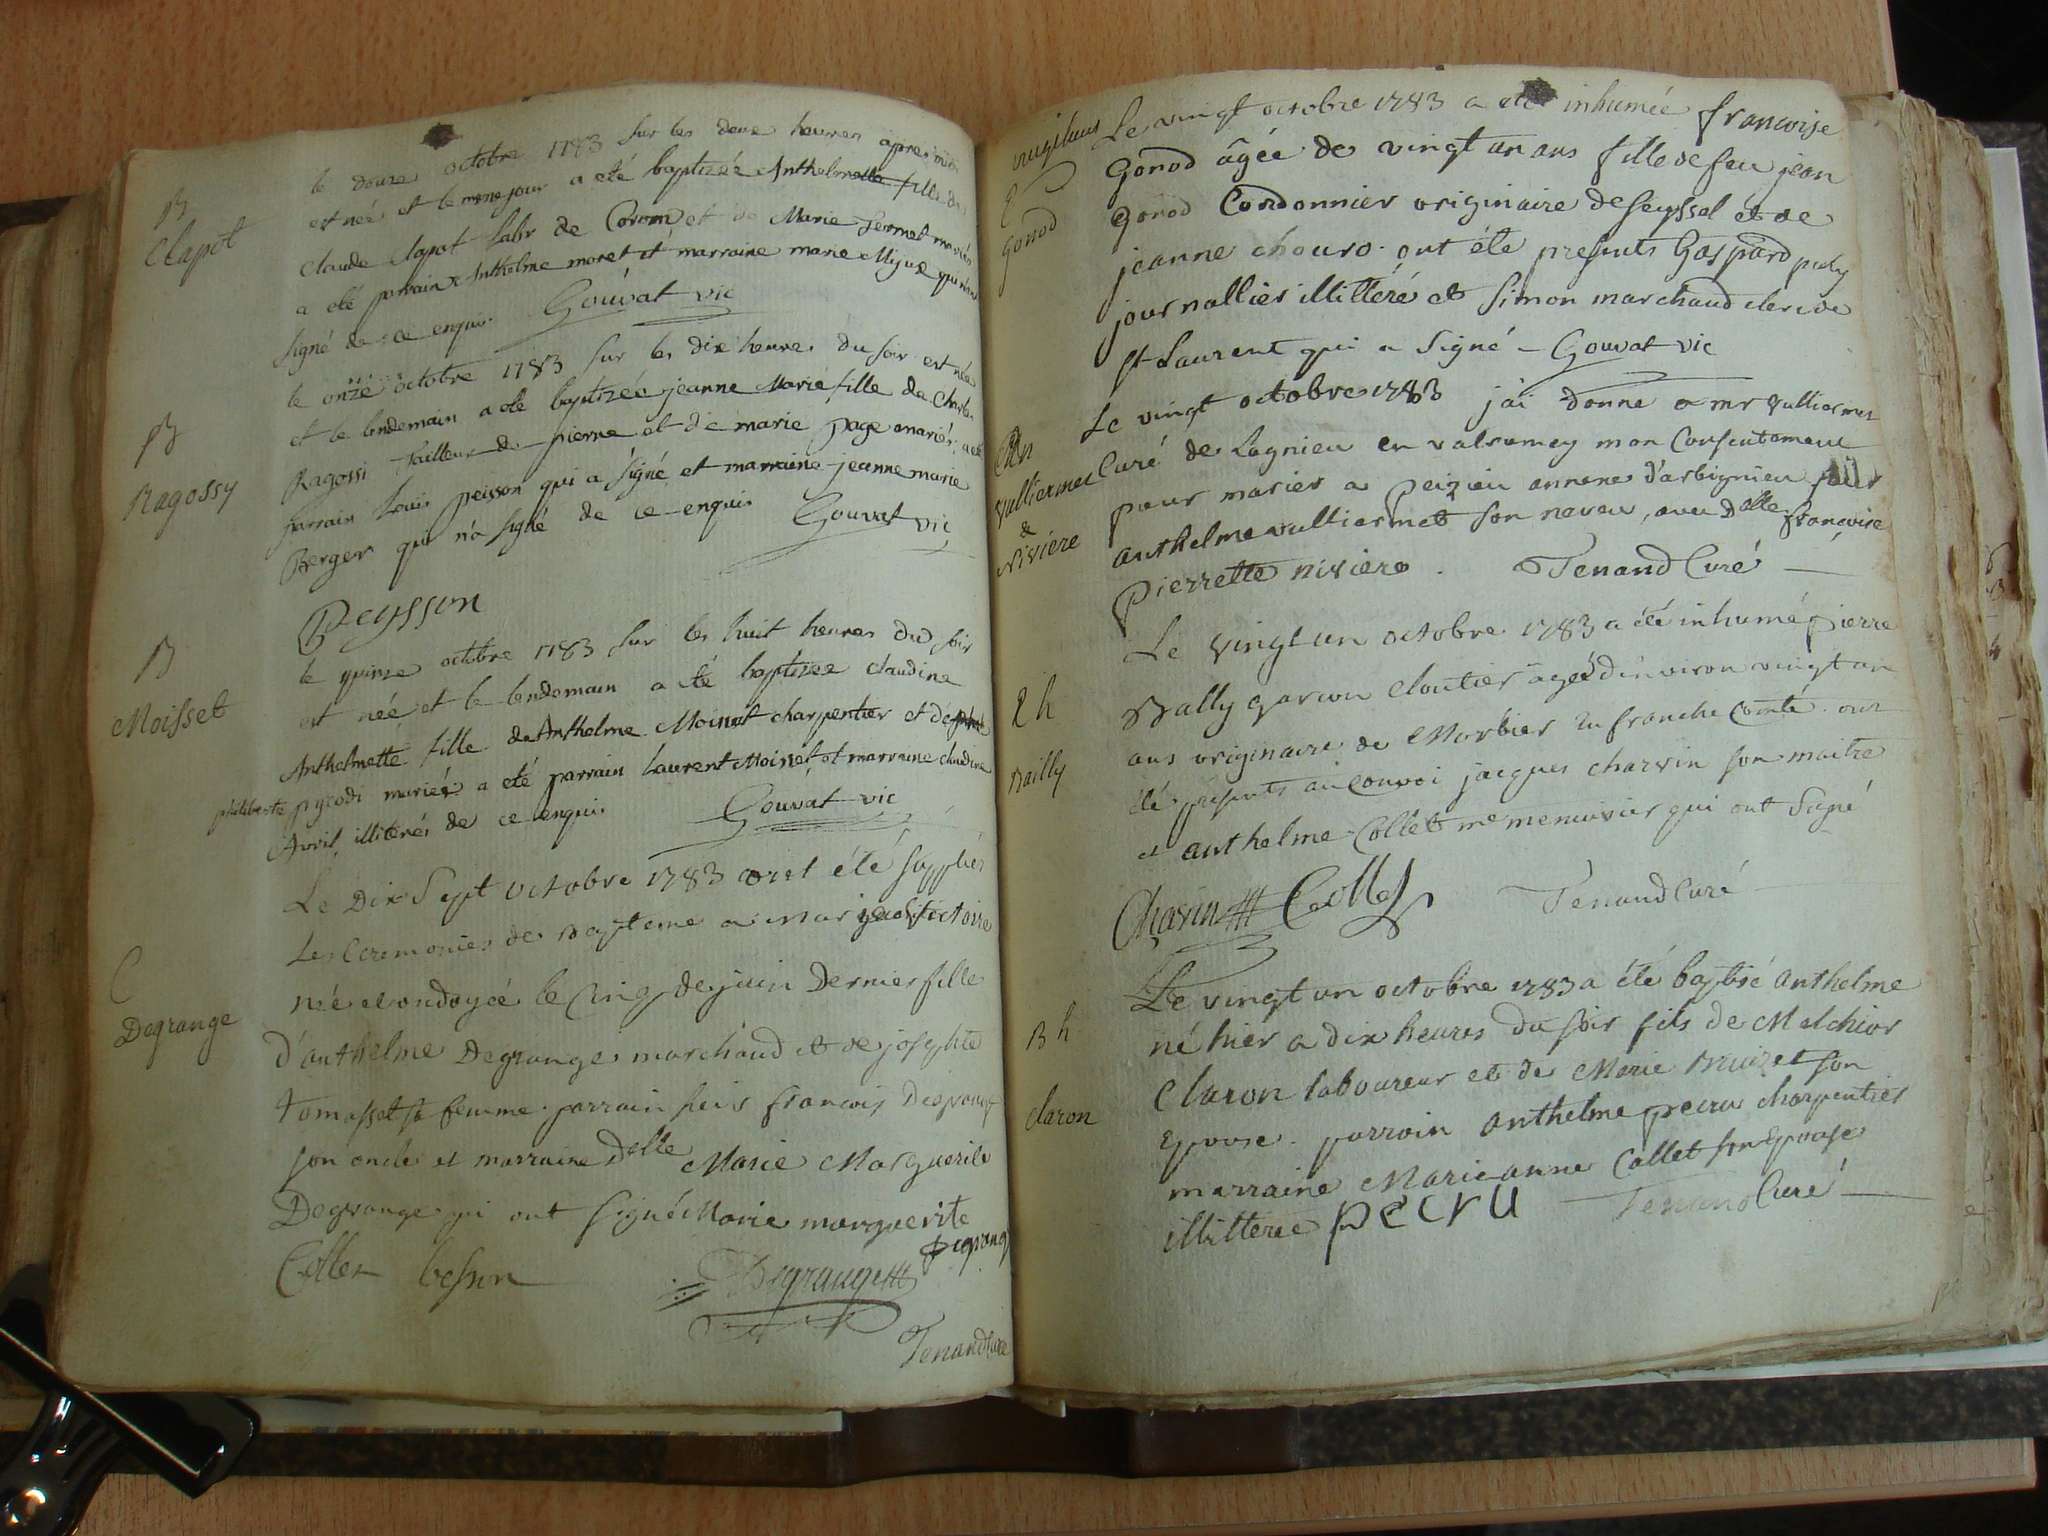 B
Clapot
le douze octobre 1783 sur les deux heures apres midi
est née et le meme jour a eté baptizée Anthelmette fille de
Claude Clapot labr de Coron et de Marie Sermet mariés
a eté parrain Anthelme moret et marraine marie qui n'ont
signé de ce enquis. Gouvat vic
B
Ragossy
le onze octobre 1783 sur les dix heures du soir est née
et le lendemain a eté baptizée jeanne Marie fille de Charles
Ragossi tailleur de pierre et de marie page mariés a eté
parrain Louis peisson qui a signé et marraine jeanne marie
Berger qui n'a signé de ce enquis Gouvat vic
Peysson
B
Moisset
le quinze octobre 1783 sur les huit heures du soir
est née et le lendemain a eté baptizée claudine
Anthelmette fille de Anthelme Moinat charpentier et de
philiberte pyrodi mariés a eté parrain laurent Moinet et marraine claudine
Avril illiterés de ce enquis Gouvat vic
C
Degrange
Le Dix Sept octobre 1783 ont été suppliés
Les Ceremonies de Bapteme a marie victoire
née et ondoyée le Cinq de juin Dernier fille
d'anthelme Degrange marchand et de josephte
tomasset sa femme. parrain francois Degrange
son oncle et marraine Delle Marie Marguerite
Degrange qui ont signé Marie marguerite
Degrange
Collet besson Degrange
Tenand Curé
vingt un ans
E
Gonod
Le vingt octobre 1783 a eté inhumée francoise
Gonod âgée de vingt un ans fille de feu jean
Gonod Cordonnier originaire de Seyssel et de
jeanne chouro. ont été presents Gaspard puly
journallier illitteré et Simon marchand clerc de
St Laurent qui a signé - Gouvat vic
Vulliermet
&
Niviere
Le vingt octobre 1783 j'ai donné a mr vulliermet
Curé de Lagnieu en valromey mon Consentement
pour marier a Peizieu annexe d'arbignieu sieur
anthelme vulliermet son neveu, avec Delle francoise
Pierrette niviere. Tenand Curé
E h
Bailly
Le vingt un octobre 1783 a été inhumé pierre
Bailly garcon Cloutier âgé d'environ vingt un
ans originaire de Morbier en franche Comté. ont
été presents au Convoi jacques charvin son maitre
et anthelme Collet me menuisier qui ont signé
Charvin Collet Tenand Curé
B h
Claron
Le vingt un octobre 1783 a été baptisé anthelme
né hier a dix heures du soir fils de Melchior
Claron laboureur et de Marie son
Epouse. parrain anthelme pecru charpentier
marraine Marie anne Collet son Epouse
illitterée pecru Tenand Curé